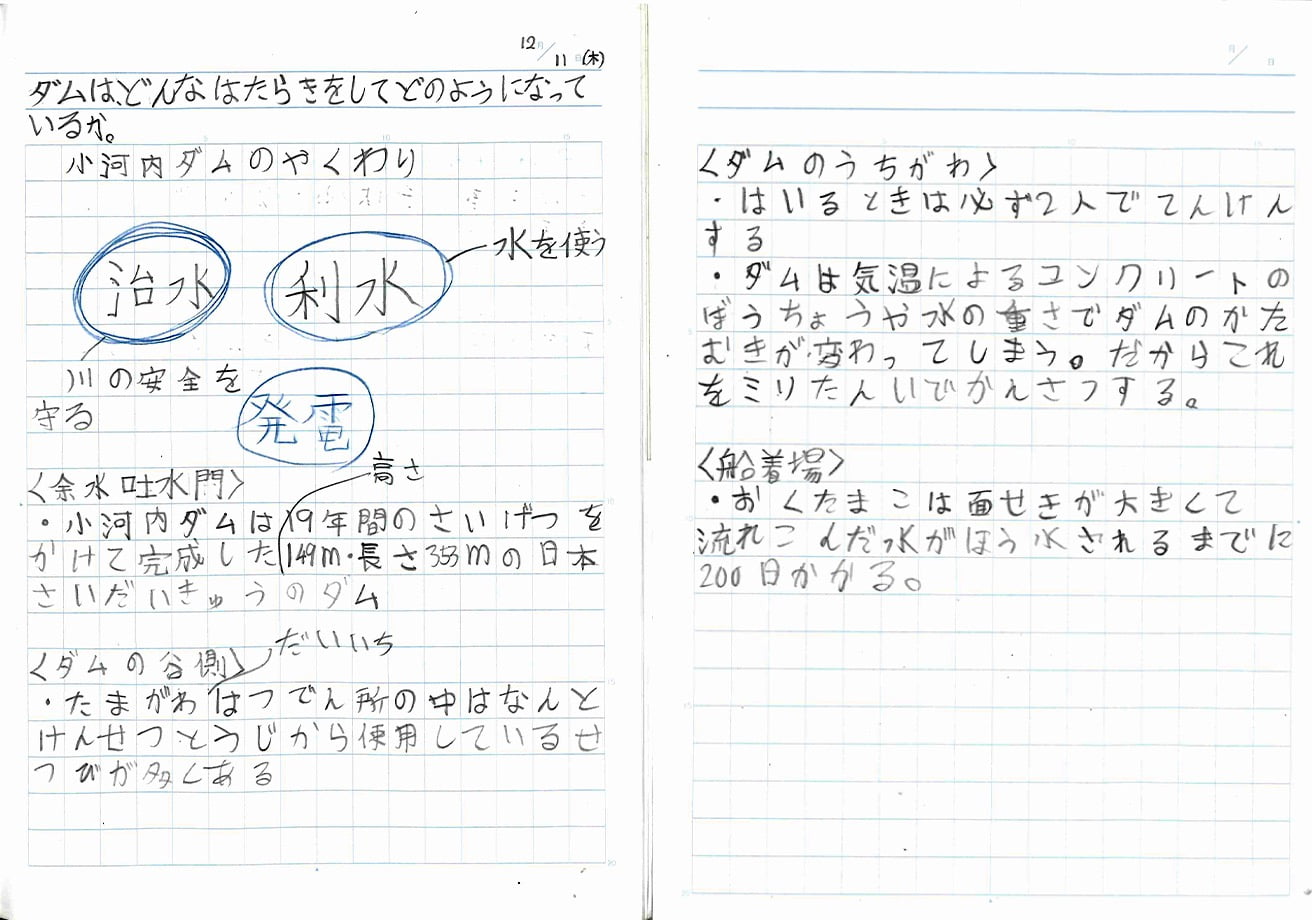 12月/11日(木)
ダムは、どんなはたらきをしてどのようになって
いるか。
小河内ダムのやくわり
治水
利水
水を使う
川の安全を
守る
発電
高さ
〈余水吐水門〉
・小河内ダムは19年間のさいげつを
かけて完成した149m・長さ353mの日本
さいだいきゅうのダム
だいいち
〈ダムの谷側〉
・たまがわはつでん所の中はなんと
けんせつとうじから使用しているせ
つびが多くある
月/日
〈ダムのうちがわ〉
・はいるときは必ず2人でてんけん
する
・ダムは気温によるコンクリートの
ぼうちょうや水の重さでダムのかた
むきが変わってしまう。だからこれ
をミリたんいでかんさつする。
〈船着場〉
・おくたまこは面せきが大きくて
流れこんだ水がほう水されるまでに
200日かかる。